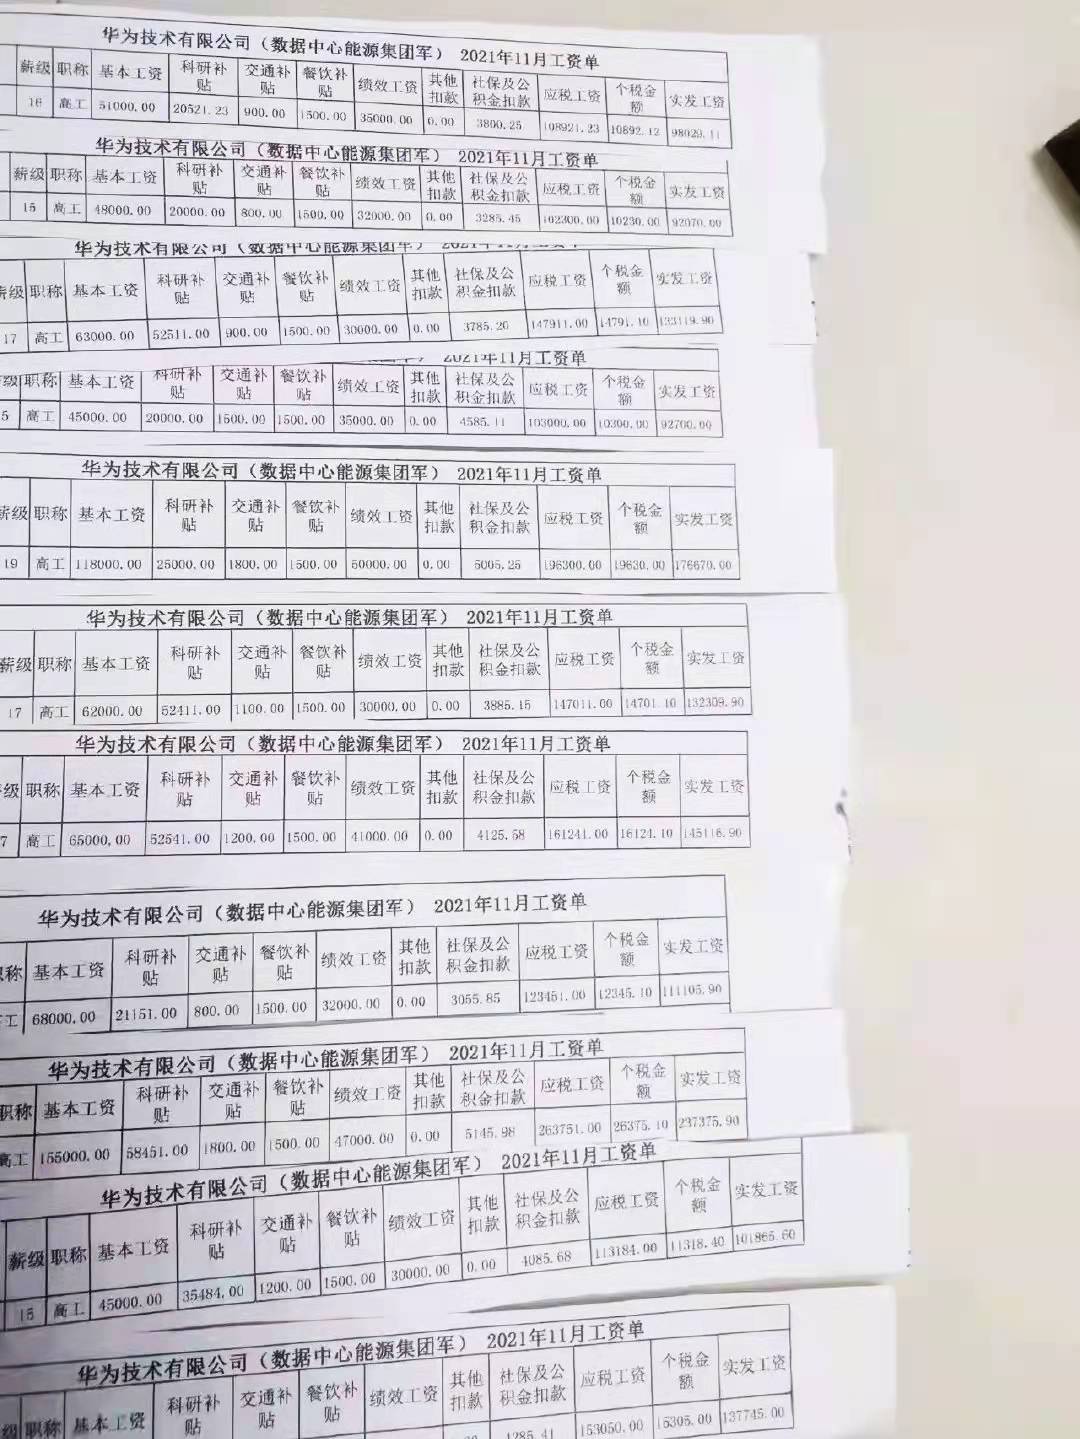 华为技术有限公司（数据中心能源集团军） 2021年11月工资单
薪级 职称 基本工资 科研补贴 交通补贴 餐饮补贴 绩效工资 其他扣款 社保及公积金扣款 应税工资 个税金额 实发工资
16 高工 51000.00 20521.23 900.00 1500.00 35000.00 0.00 3800.25 108921.23 10892.12 98029.11
华为技术有限公司（数据中心能源集团军） 2021年11月工资单
薪级 职称 基本工资 科研补贴 交通补贴 餐饮补贴 绩效工资 其他扣款 社保及公积金扣款 应税工资 个税金额 实发工资
15 高工 48000.00 20000.00 800.00 1500.00 32000.00 0.00 3285.45 102300.00 10230.00 92070.00
华为技术有限公司（数据中心能源集团军） 2021年11月工资单
薪级 职称 基本工资 科研补贴 交通补贴 餐饮补贴 绩效工资 其他扣款 社保及公积金扣款 应税工资 个税金额 实发工资
17 高工 63000.00 52511.00 900.00 1500.00 30000.00 0.00 3785.20 147911.00 14791.10 133119.90
2021年11月工资单
薪级 职称 基本工资 科研补贴 交通补贴 餐饮补贴 绩效工资 其他扣款 社保及公积金扣款 应税工资 个税金额 实发工资
5 高工 45000.00 20000.00 1500.00 1500.00 35000.00 0.00 4585.11 103000.00 10300.00 92700.00
华为技术有限公司（数据中心能源集团军） 2021年11月工资单
薪级 职称 基本工资 科研补贴 交通补贴 餐饮补贴 绩效工资 其他扣款 社保及公积金扣款 应税工资 个税金额 实发工资
19 高工 118000.00 25000.00 1800.00 1500.00 50000.00 0.00 5005.25 196300.00 19630.00 176670.00
华为技术有限公司（数据中心能源集团军） 2021年11月工资单
薪级 职称 基本工资 科研补贴 交通补贴 餐饮补贴 绩效工资 其他扣款 社保及公积金扣款 应税工资 个税金额 实发工资
17 高工 62000.00 52411.00 1100.00 1500.00 30000.00 0.00 3885.15 147011.00 14701.10 132309.90
华为技术有限公司（数据中心能源集团军） 2021年11月工资单
级 职称 基本工资 科研补贴 交通补贴 餐饮补贴 绩效工资 其他扣款 社保及公积金扣款 应税工资 个税金额 实发工资
7 高工 65000.00 52541.00 1200.00 1500.00 41000.00 0.00 4125.58 161241.00 16124.10 145116.90
华为技术有限公司（数据中心能源集团军） 2021年11月工资单
职称 基本工资 科研补贴 交通补贴 餐饮补贴 绩效工资 其他扣款 社保及公积金扣款 应税工资 个税金额 实发工资
工 68000.00 21151.00 800.00 1500.00 32000.00 0.00 3055.85 123451.00 12345.10 111105.90
华为技术有限公司（数据中心能源集团军） 2021年11月工资单
职称 基本工资 科研补贴 交通补贴 餐饮补贴 绩效工资 其他扣款 社保及公积金扣款 应税工资 个税金额 实发工资
高工 155000.00 58451.00 1800.00 1500.00 47000.00 0.00 5145.98 263751.00 26375.10 237375.90
华为技术有限公司（数据中心能源集团军） 2021年11月工资单
薪级 职称 基本工资 科研补贴 交通补贴 餐饮补贴 绩效工资 其他扣款 社保及公积金扣款 应税工资 个税金额 实发工资
15 高工 45000.00 35484.00 1200.00 1500.00 30000.00 0.00 4085.68 113184.00 11318.40 101865.60
华为技术有限公司（数据中心能源集团军） 2021年11月工资单
级 职称 基本工资 科研补贴 交通补贴 餐饮补贴 绩效工资 其他扣款 社保及公积金扣款 应税工资 个税金额 实发工资
4285.41 153050.00 15305.00 137745.00